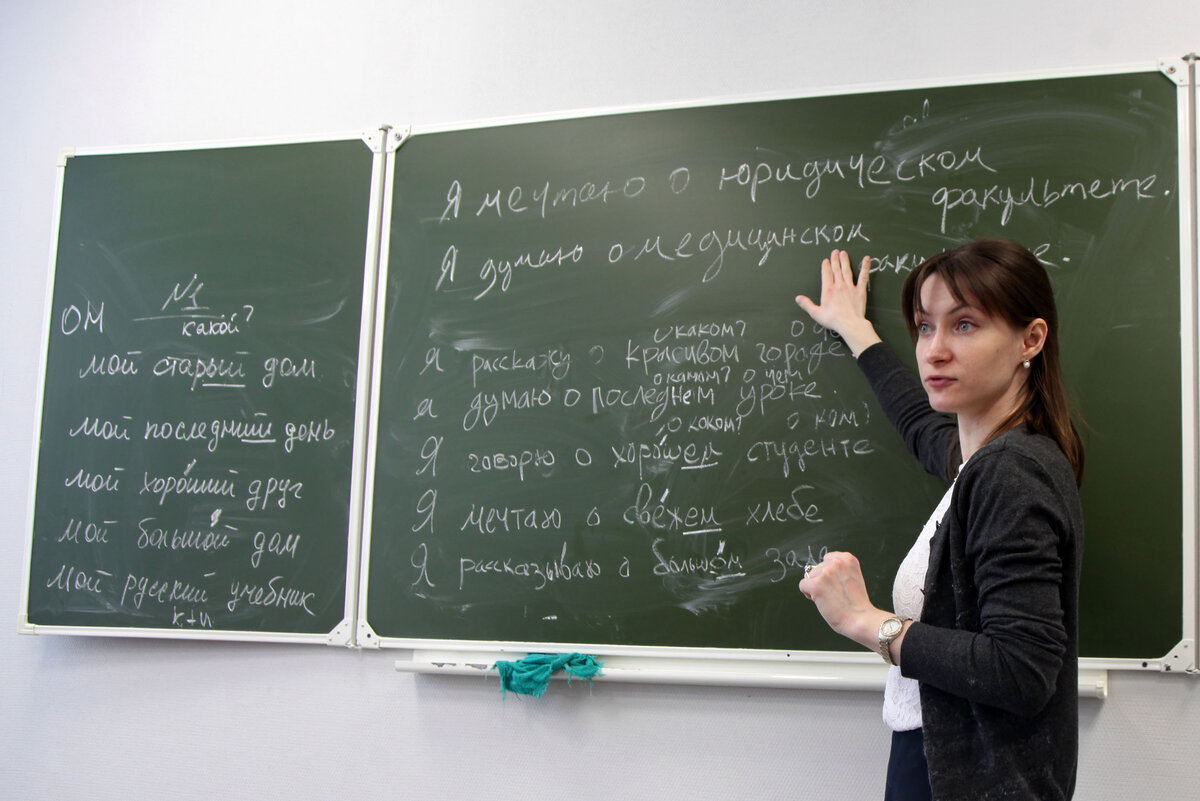 ОМ
№1
какой?
мой старый дом
мой последний день
мой хороший друг
мой большой дом
мой русский учебник
к+и
Я мечтаю о юридическом
факультете.
Я думаю о медицинском
о каком?
Я расскажу о красивом городе
о каком? о чём
я думаю о последнем уроке.
о каком? о ком?
Я говорю о хорошем студенте
Я мечтаю о свежем хлебе
Я рассказываю о большом зале